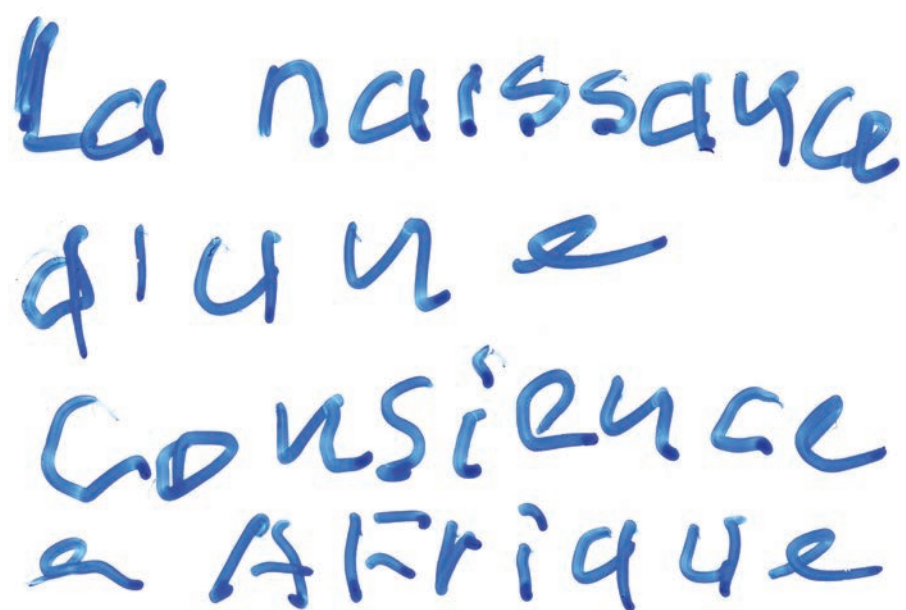 La naissance
d'une
Consience
e AFrique